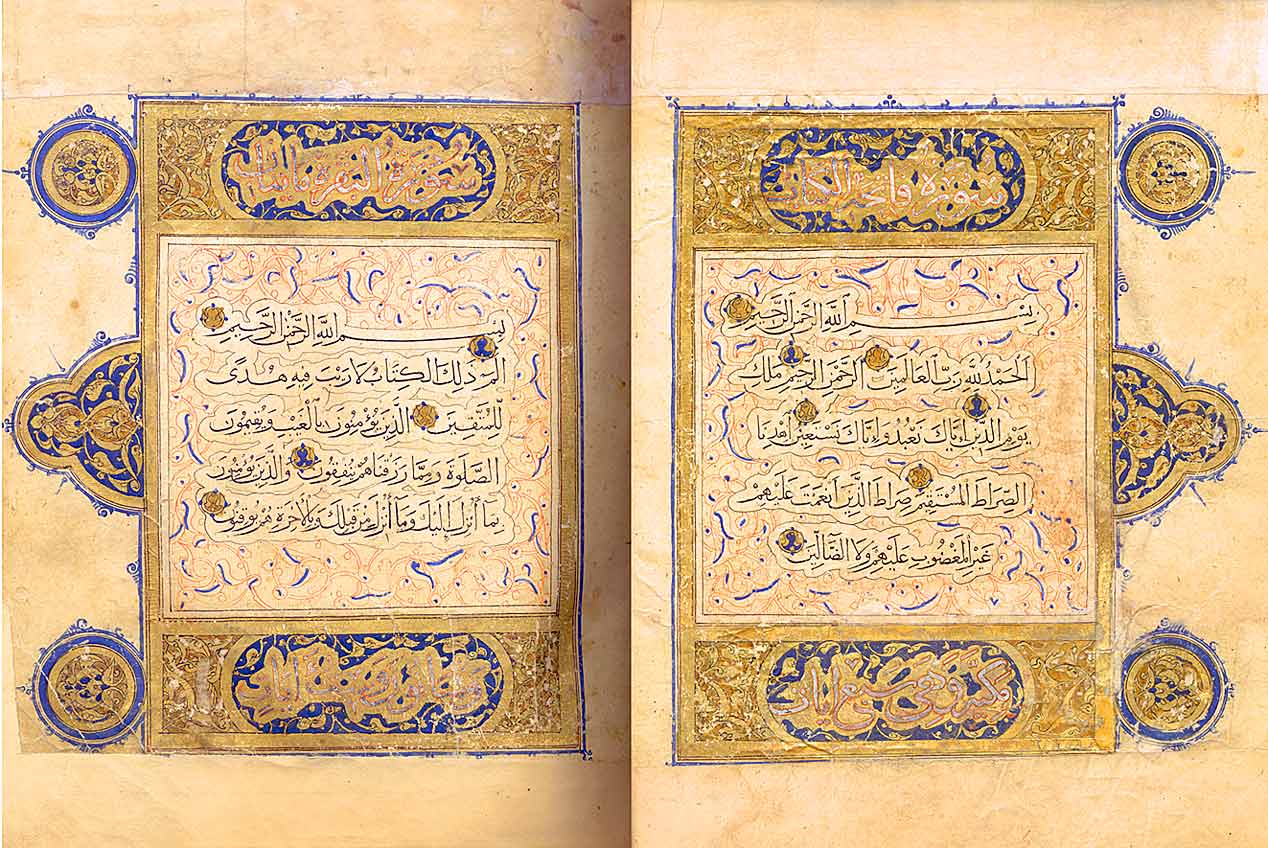 سورة فاتحة الكتاب
بِسْمِ اللَّهِ الرَّحْمٰنِ الرَّحِيمِ
الْحَمْدُ لِلَّهِ رَبِّ الْعَالَمِينَ الرَّحْمٰنِ الرَّحِيمِ مَلِكِ
يَوْمِ الدِّينِ إِيَّاكَ نَعْبُدُ وَإِيَّاكَ نَسْتَعِينُ اهْدِنَا
الصِّرَاطَ الْمُسْتَقِيمَ صِرَاطَ الَّذِينَ أَنْعَمْتَ عَلَيْهِمْ
غَيْرِ الْمَغْضُوبِ عَلَيْهِمْ وَلَا الضَّالِّينَ
مكية وهي سبع ايات
سورة البقرة مايتان
بِسْمِ اللَّهِ الرَّحْمٰنِ الرَّحِيمِ
الم ذٰلِكَ الْكِتَابُ لَا رَيْبَ فِيهِ هُدًى
لِّلْمُتَّقِينَ الَّذِينَ يُؤْمِنُونَ بِالْغَيْبِ وَيُقِيمُونَ
الصَّلٰوةَ وَمِمَّا رَزَقْنَاهُمْ يُنْفِقُونَ وَالَّذِينَ يُؤْمِنُونَ
بِمَا أُنْزِلَ إِلَيْكَ وَمَا أُنْزِلَ مِنْ قَبْلِكَ وَبِالْآخِرَةِ هُمْ يُوقِنُونَ
وثمانون وست ايات